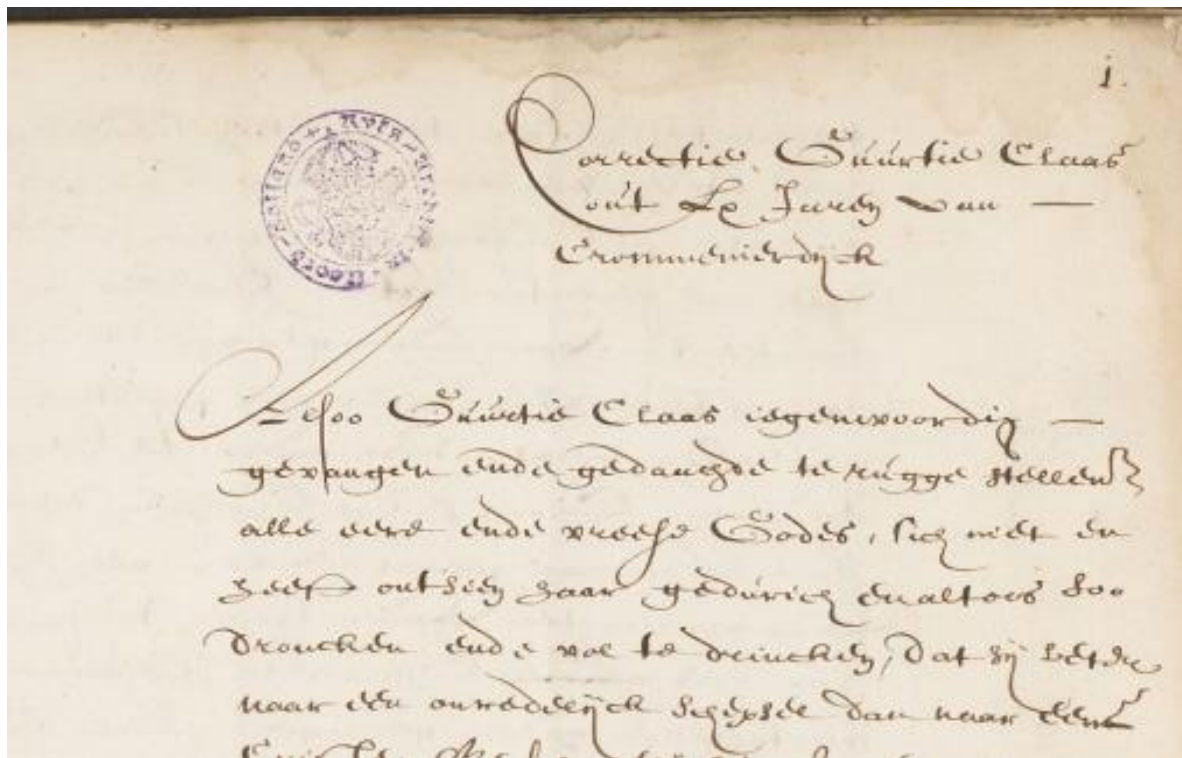 1.
Correctie, Guurtie Claas
out Lx Jaren van
Crommenierdijck
Alsoo Guurtie Claas iegenwoordig
gevangen ende gedaeghde te rugge stellen
alle eere ende vreese Godes, sich niet en
heeft ontsien haar gedurich en altoos soo
droncken ende vol te drincken, dat sij beter
naar een onredelijck schepsel dan naar een